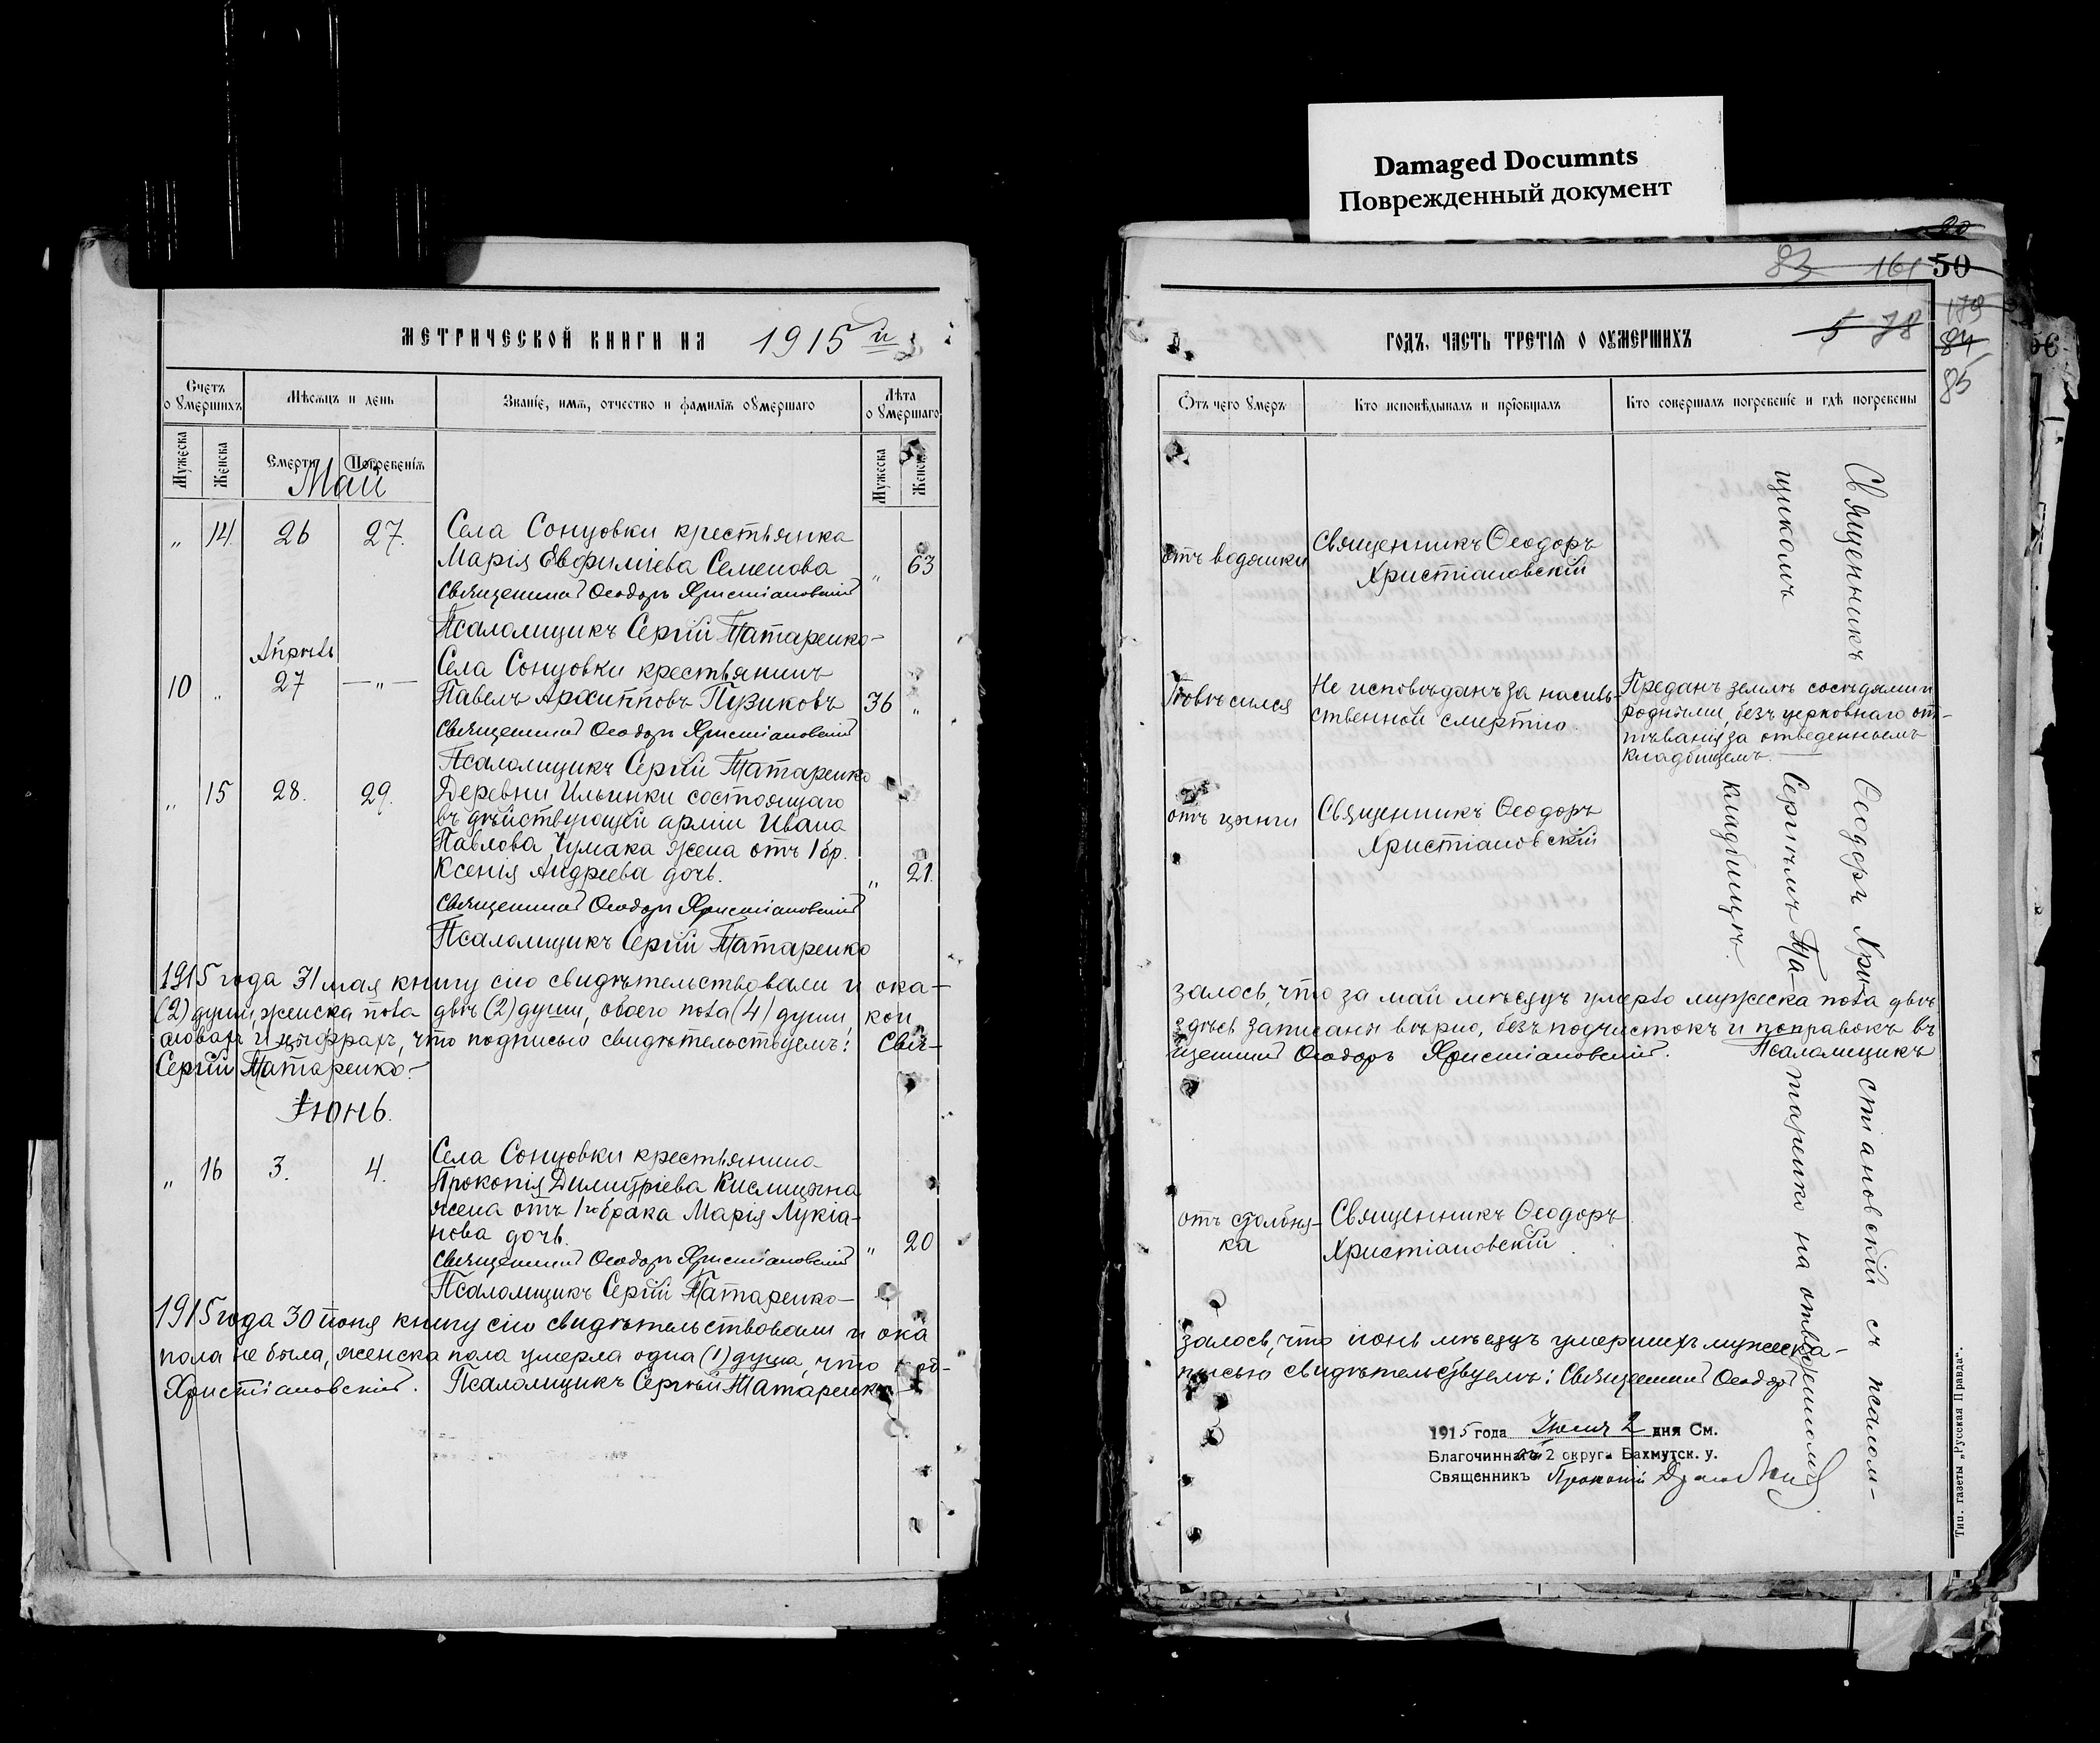 Damaged Documnts
Поврежденный документ
20
83 161 50
178
84
85
56
МЕТРИЧЕСКОЙ КНИГИ НА 1915 й
Счетъ оумершихъ
Мѣсяцъ и день
Званіе, имя, отчество и фамилія оумершаго
Лѣта оумершаго
Мужеска
Женска
Смерти
Погребенія
Мужеска
Женска
Май
„ 14 26 27.
Села Сонцовки крестьянка
Марія Евфиміева Семенова „ 63
Священникъ Ѳеодоръ Христіановскій
Псаломщикъ Сергій Татаренко
Апрѣль
10 „ 27 — „ —
Села Сонцовки крестьянинъ
Павелъ Архипповъ Пузиковъ 36 „
Священникъ Ѳеодоръ Христіановскій
Псаломщикъ Сергій Татаренко
„ 15 28. 29.
Деревни Ильинки состоящаго
въ дѣйствующей арміи Ивана
Павлова Чумака жена отъ 1 бр.
Ксенія Андреева дочь. „ 21.
Священникъ Ѳеодоръ Христіановскій
Псаломщикъ Сергій Татаренко
1915 года 31 мая книгу сію свидѣтельствовали и ока-
(2) души, женска пола двѣ (2) души, обоего пола (4) души, кои
словахъ и цыфрахъ, что подписью свидѣтельствуемъ: Свя-
Сергій Татаренко.
Іюнь.
„ 16 3. 4.
Села Сонцовки крестьянина
Прокопія Димитріева Кислицына
жена отъ 1го брака Марія Лукіа-
нова дочь. „ 20
Священникъ Ѳеодоръ Христіановскій
Псаломщикъ Сергій Татаренко
1915 года 30 іюня книгу сію свидѣтельствовали и ока
пола не было, женска пола умерла одна (1) душа, что под-
Христіановскій. Псаломщикъ Сергѣй Татаренко
ГОДЪ, ЧАСТЬ ТРЕТІЯ О ОУМЕРШИХЪ
5 78
Отъ чего умеръ
Кто исповѣдывалъ и пріобщалъ
Кто совершалъ погребеніе и гдѣ погребены
отъ водянки
Священникъ Ѳеодоръ
Христіановскій
Повѣсился
Не исповѣданъ за насиль-
ственной смертію.
Преданъ землѣ сосѣдями и
родными, безъ церковнаго от-
пѣванія за отведеннымъ
кладбищемъ.
отъ цынги
Священникъ Ѳеодоръ
Христіановскій
залось, что за май мѣсяцъ умерло мужеска пола двѣ
здѣсь записаны вѣрно, безъ подчистокъ и поправокъ въ
щенникъ Ѳеодоръ Христіановскій. Псаломщикъ
отъ столбня-
ка
Священникъ Ѳеодоръ
Христіановскій
залось, что іюнь мѣсяцъ умершихъ мужеска-
писью свидѣтельствуемъ: Священникъ Ѳеодоръ
Священникъ Ѳеодоръ Христіановскій съ псалом-
щикомъ Сергіемъ Татаренко на отведенномъ
кладбищѣ.
1915 года Іюля 2 дня См.
Благочинный 2 округа Бахмутск. у.
Священникъ Прокопій
Тип. газеты „Русская Правда“.